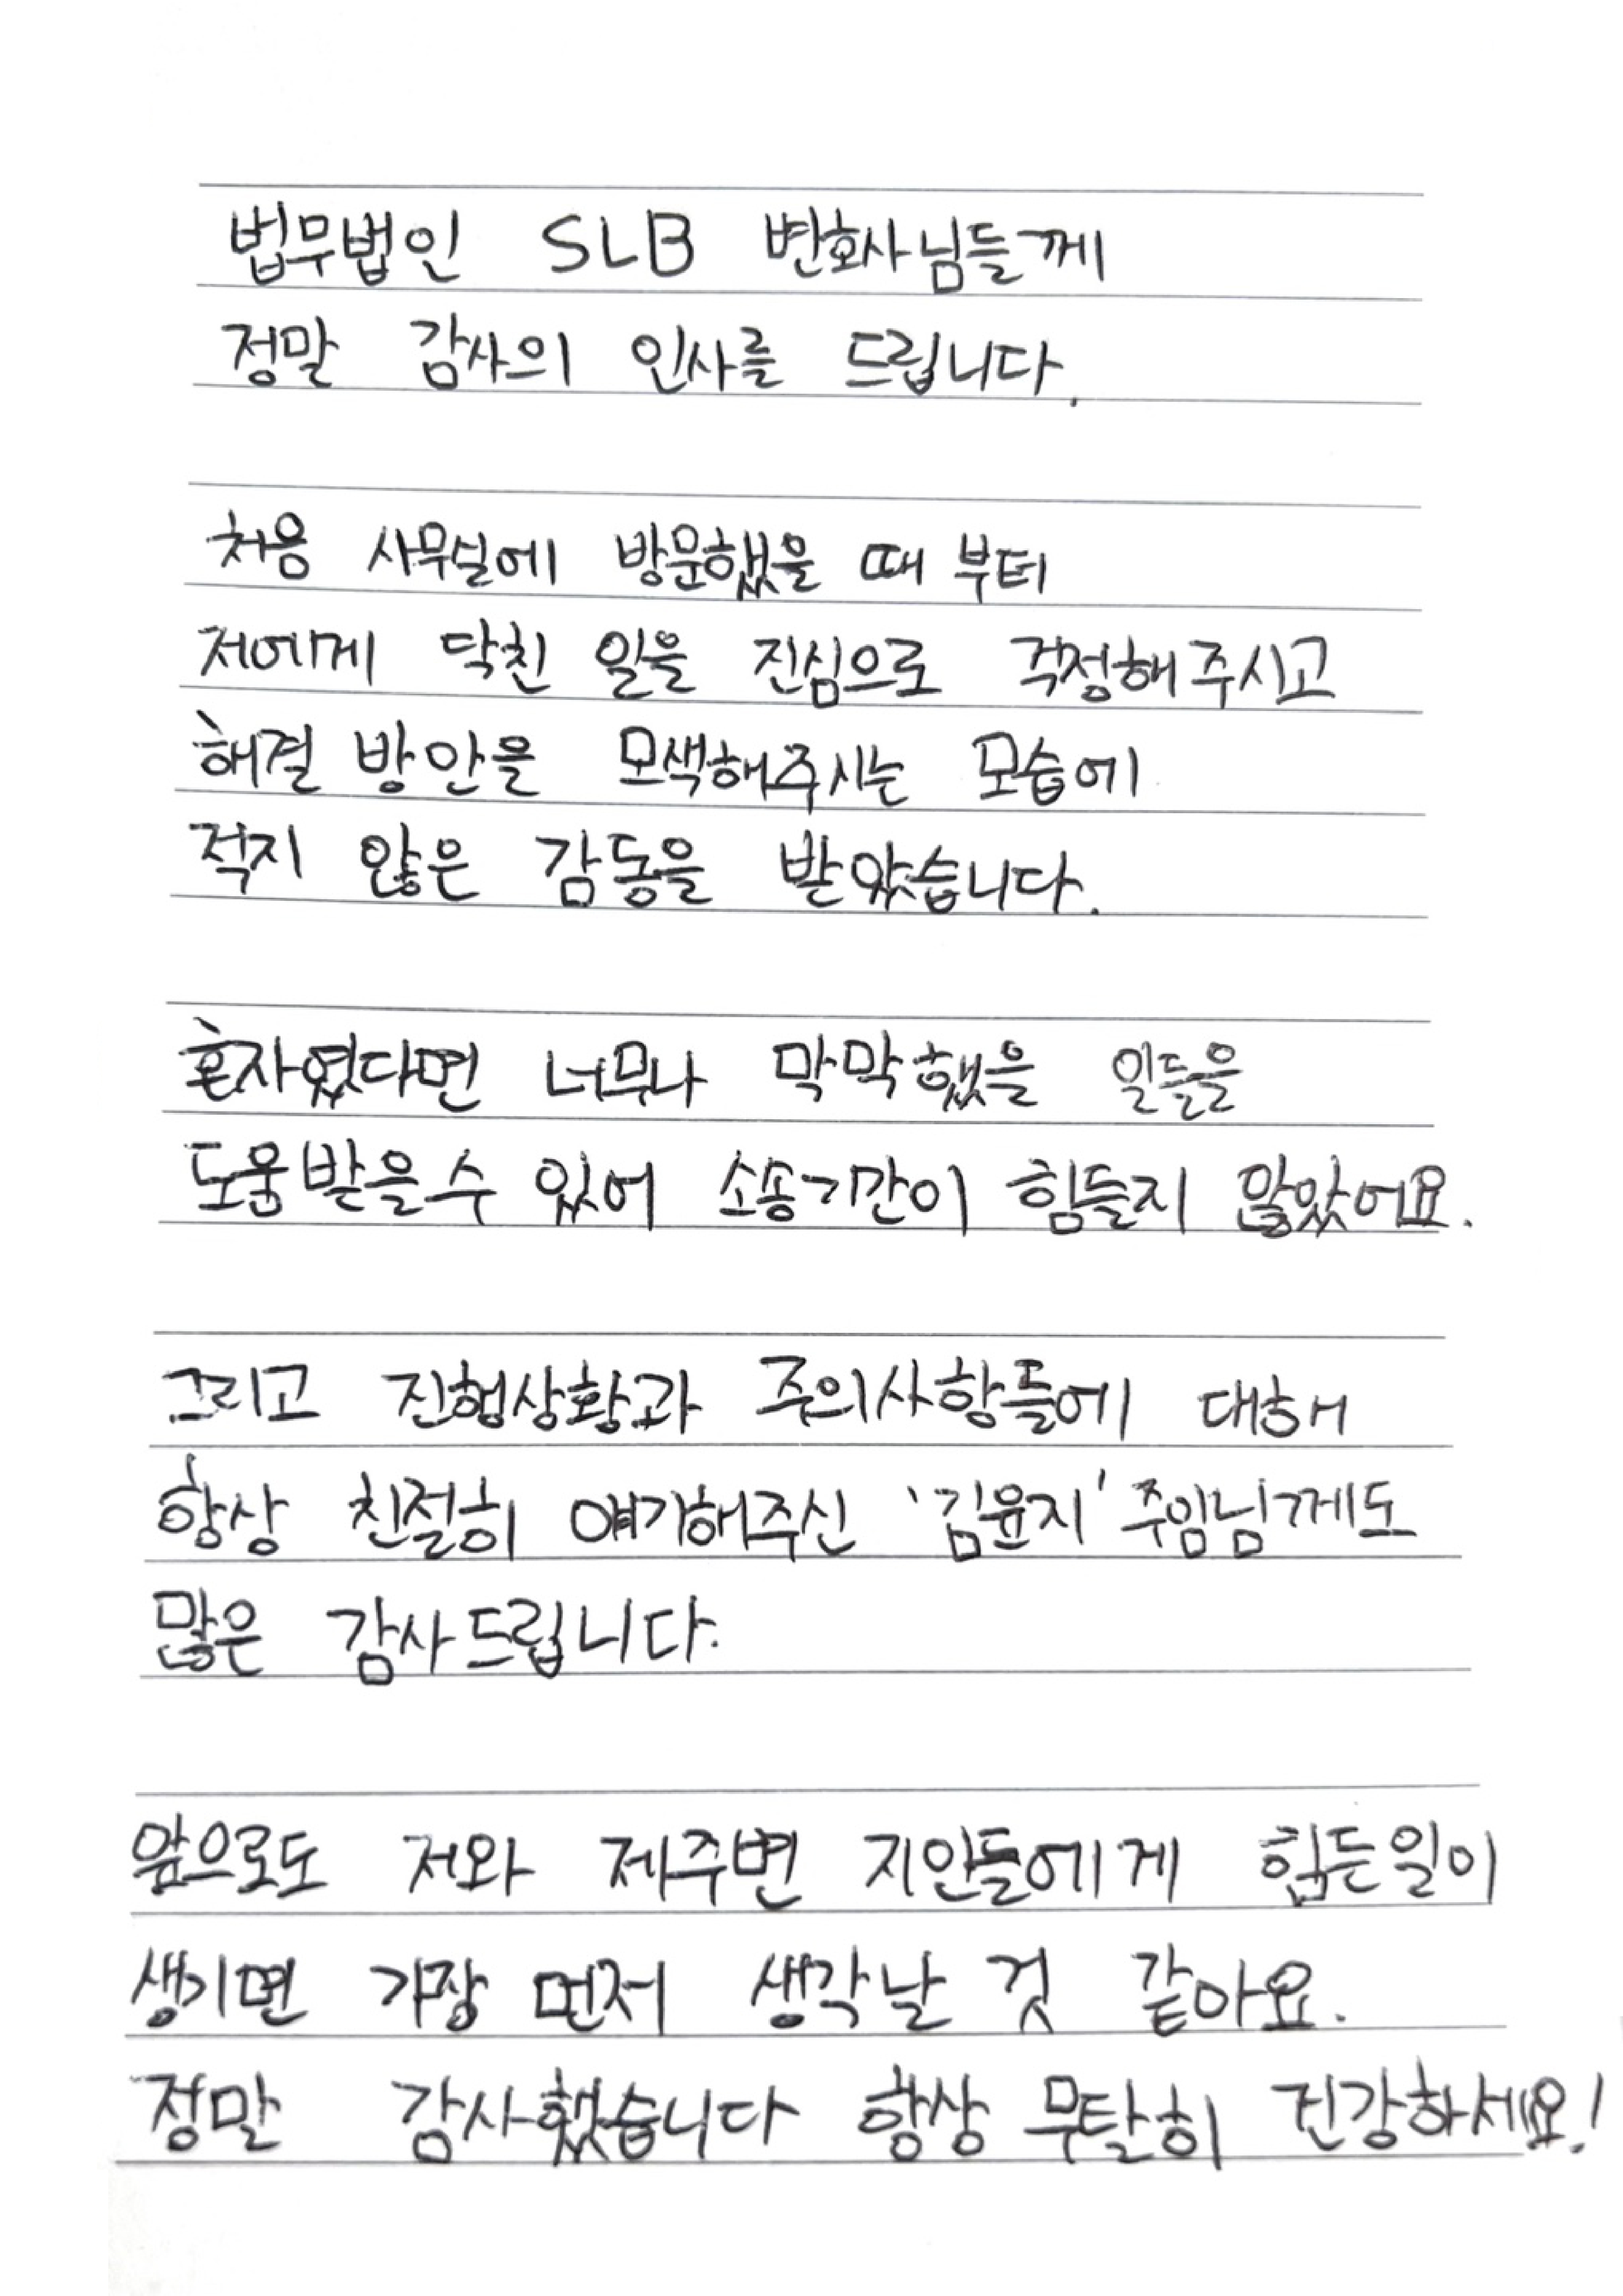 법무법인 SLB 변호사님들께
정말 감사의 인사를 드립니다.
처음 사무실에 방문했을 때 부터
저에게 닥친 일을 진심으로 걱정해주시고
해결 방안을 모색해주시는 모습에
적지 않은 감동을 받았습니다.
혼자였다면 너무나 막막했을 일들을
도움받을수 있어 소송기간이 힘들지 않았어요.
그리고 진행상황과 주의사항들에 대해
항상 친절히 얘기해주신 '김윤지' 주임님께도
많은 감사드립니다.
앞으로도 저와 제주변 지인들에게 힘든일이
생기면 가장 먼저 생각날 것 같아요.
정말 감사했습니다 항상 무탈히 건강하세요!